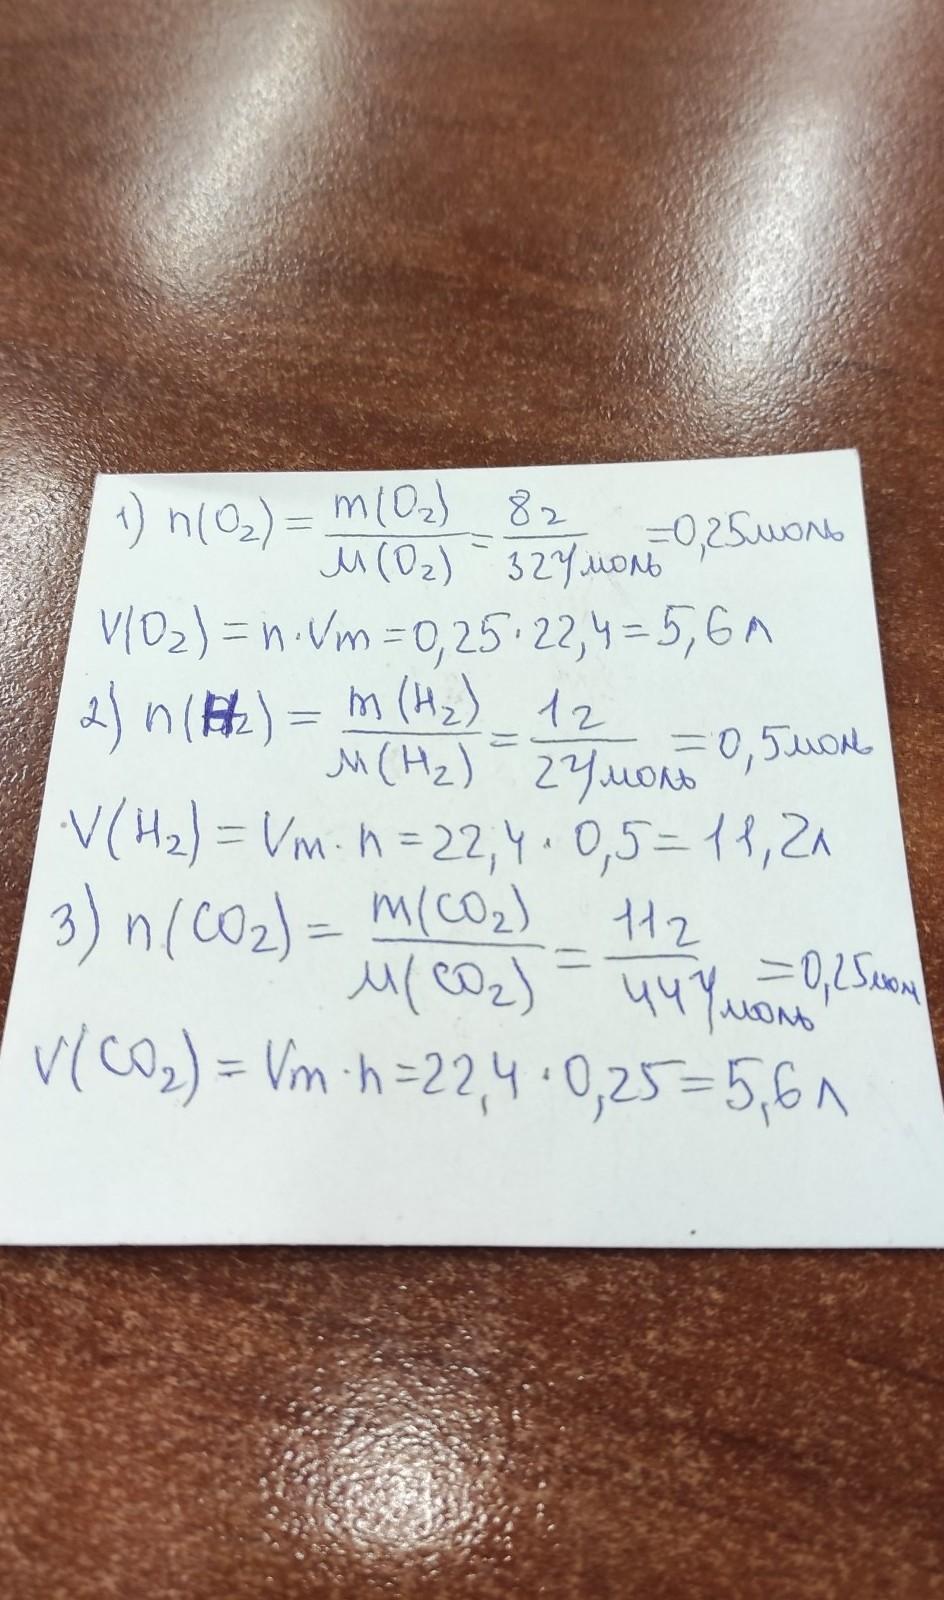 1) n(O₂) = m(O₂)/M(O₂) = 8г/32г/моль = 0,25моль
V(O₂) = n·Vm = 0,25·22,4 = 5,6 л
2) n(H₂) = m(H₂)/M(H₂) = 1г/2г/моль = 0,5моль
V(H₂) = Vm·n = 22,4·0,5 = 11,2л
3) n(CO₂) = m(CO₂)/M(CO₂) = 11г/44г/моль = 0,25мол
V(CO₂) = Vm·n = 22,4·0,25 = 5,6 л